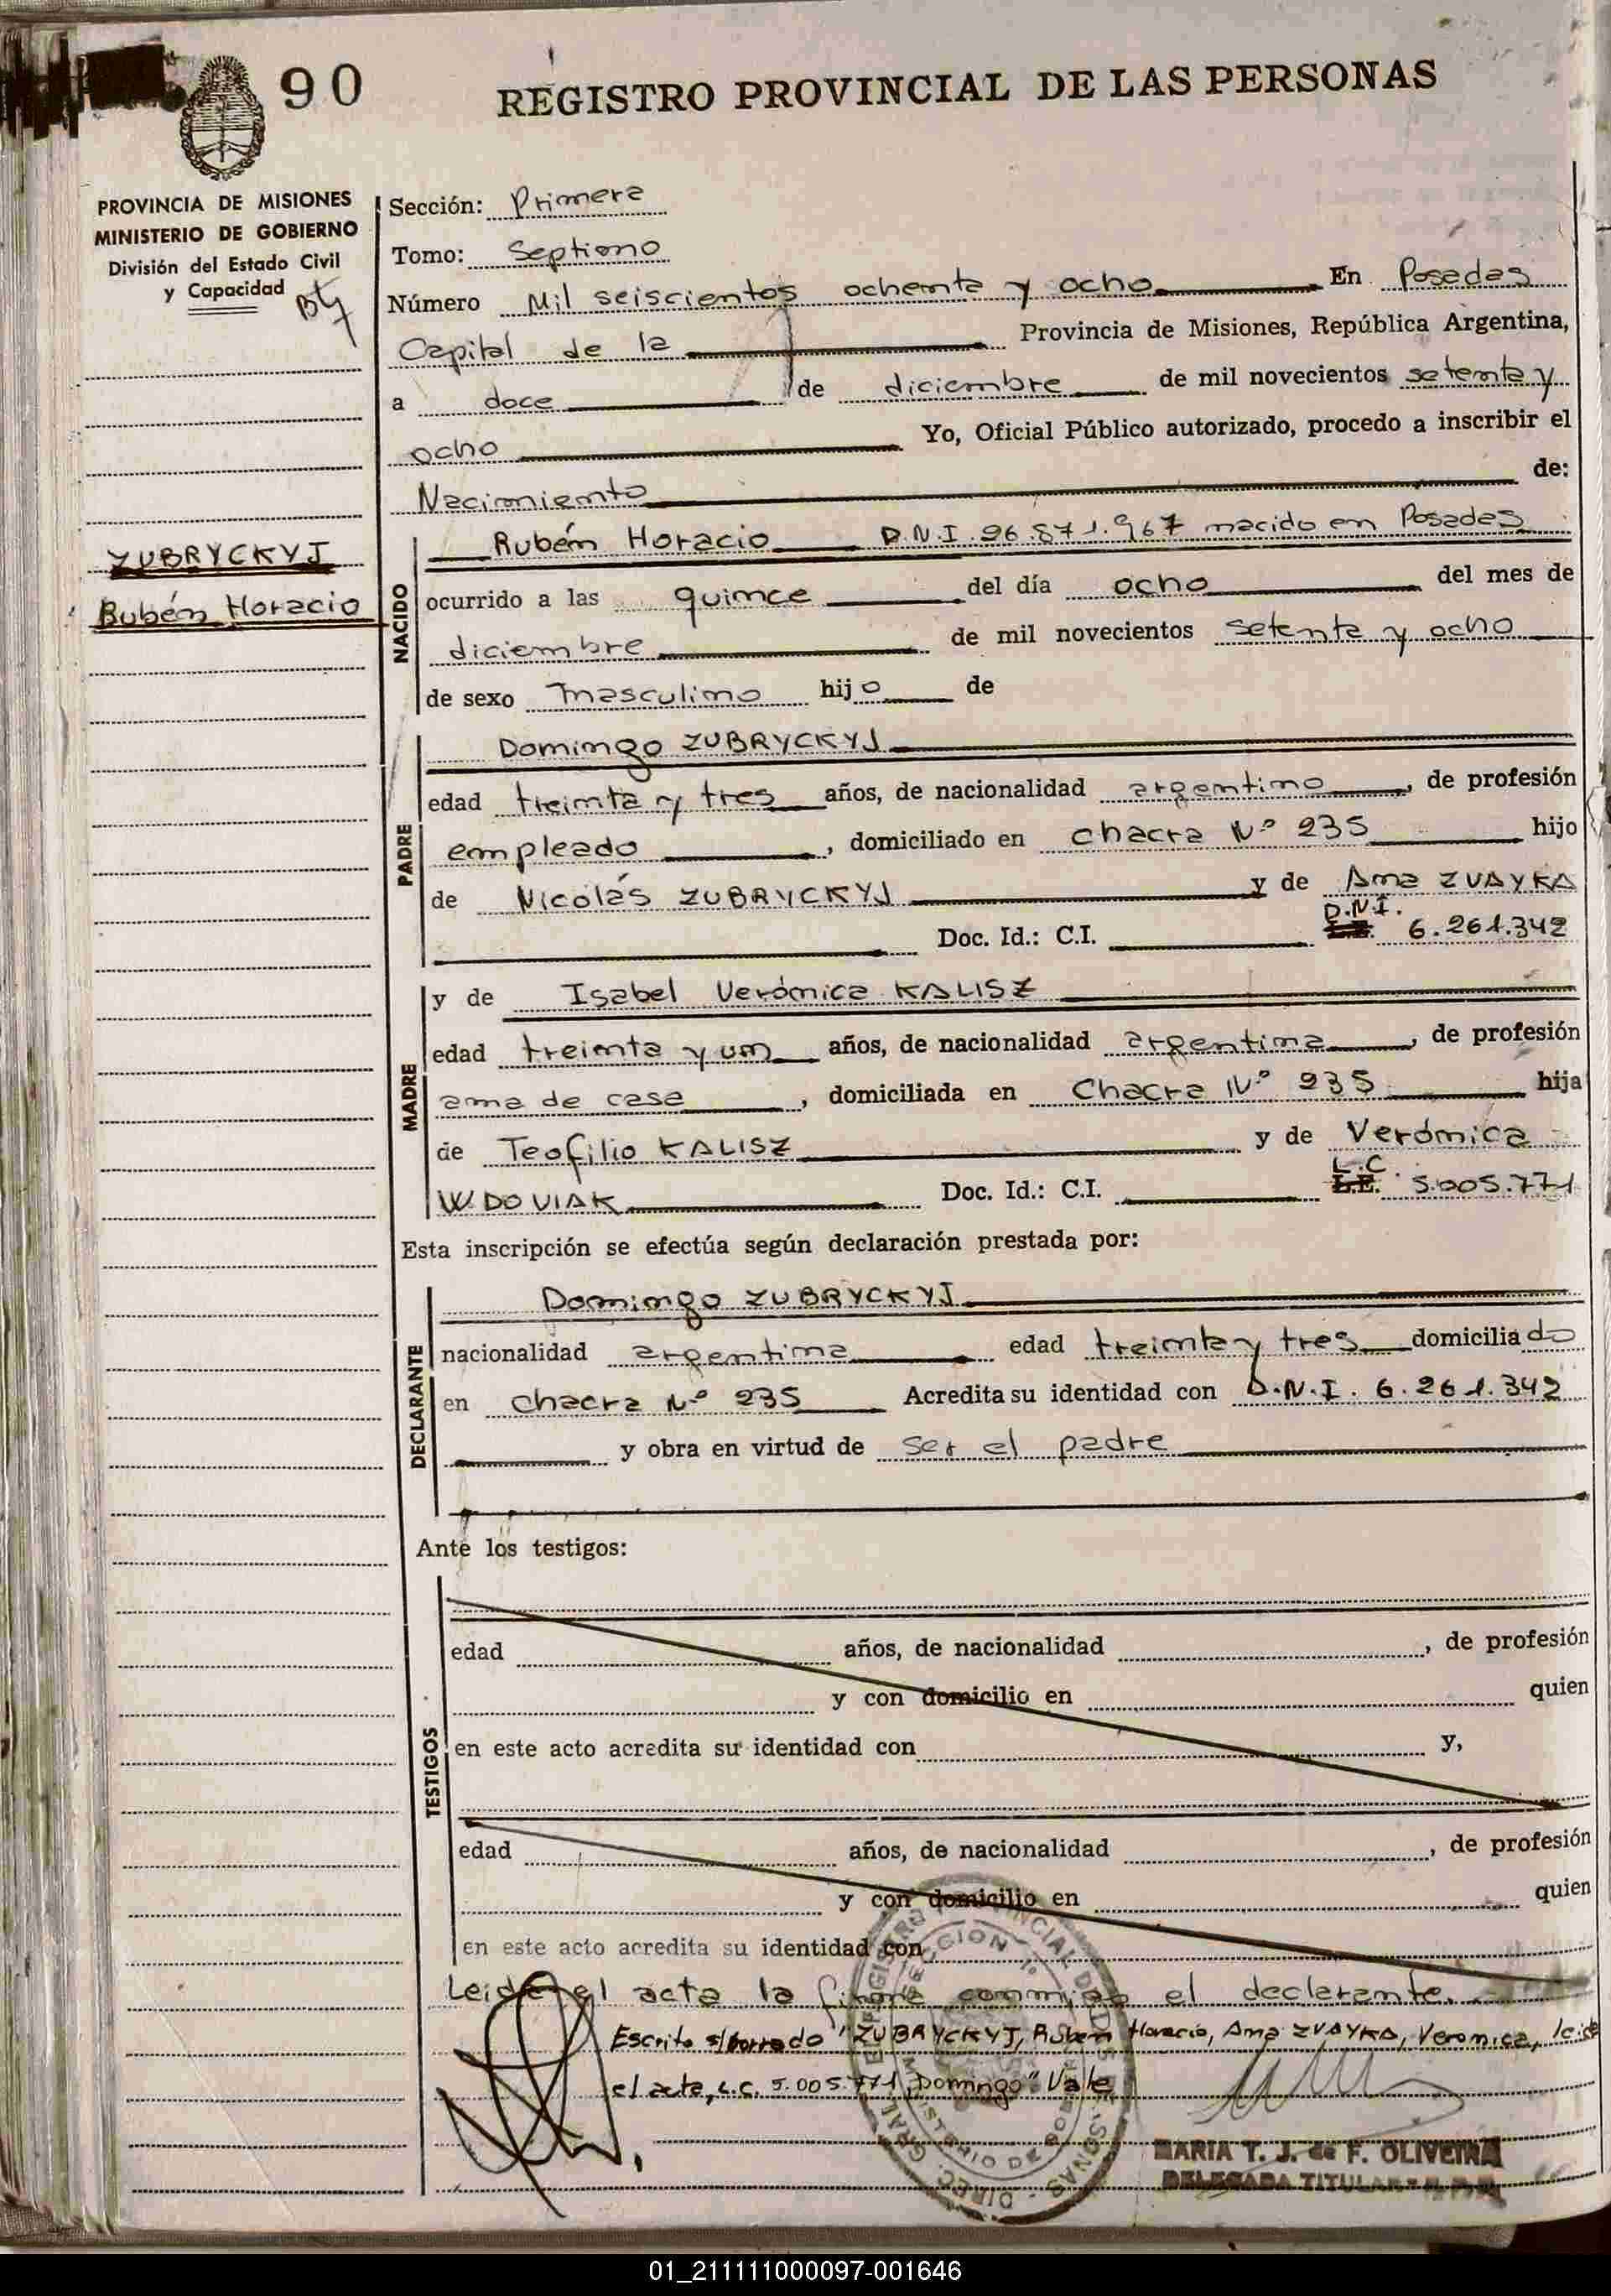 90
REGISTRO PROVINCIAL DE LAS PERSONAS
PROVINCIA DE MISIONES
MINISTERIO DE GOBIERNO
División del Estado Civil
y Capacidad
Sección: Primera
Tomo: Septimo
Número Mil seiscientos ochenta y ocho En Posadas
Capital de la Provincia de Misiones, República Argentina,
a doce de diciembre de mil novecientos setenta y
ocho Yo, Oficial Público autorizado, procedo a inscribir el
Nacimiento de:
ZUBRYCKYJ
Rubén Horacio
NACIDO
Rubén Horacio D.N.I. 26.871.967 nacido en Posadas
ocurrido a las quince del día ocho del mes de
diciembre de mil novecientos setenta y ocho
de sexo masculino hijo de
PADRE
Domingo ZUBRYCKYJ
edad treinta y tres años, de nacionalidad argentino, de profesión
empleado, domiciliado en chacra Nº 235 hijo
de Nicolás ZUBRYCKYJ y de Ana ZVAYKA
Doc. Id.: C.I. D.N.I. 6.261.342
MADRE
y de Isabel Verónica KALISZ
edad treinta y un años, de nacionalidad argentina, de profesión
ama de casa, domiciliada en Chacra Nº 235 hija
de Teofilio KALISZ y de Verónica
WDOVIAK Doc. Id.: C.I. L.C. L.E. 5.005.771
Esta inscripción se efectúa según declaración prestada por:
DECLARANTE
Domingo ZUBRYCKYJ
nacionalidad argentina edad treinta y tres domiciliado
en chacra Nº 235 Acredita su identidad con D.N.I. 6.261.342
y obra en virtud de ser el padre
Ante los testigos:
TESTIGOS
edad años, de nacionalidad , de profesión
y con domicilio en quien
en este acto acredita su identidad con y,
edad años, de nacionalidad , de profesión
y con domicilio en quien
en este acto acredita su identidad con
Leida el acta la firma conmigo el declarante.
Escrito s/borrado "ZUBRYCKYJ, Ruben Horacio, Ana ZVAYKA, Veronica, leida
el acta, L.C. 5.005.771, Domingo" Vale
MARIA T. J. de F. OLIVEIRA
DELEGADA TITULAR
01_211111000097-001646